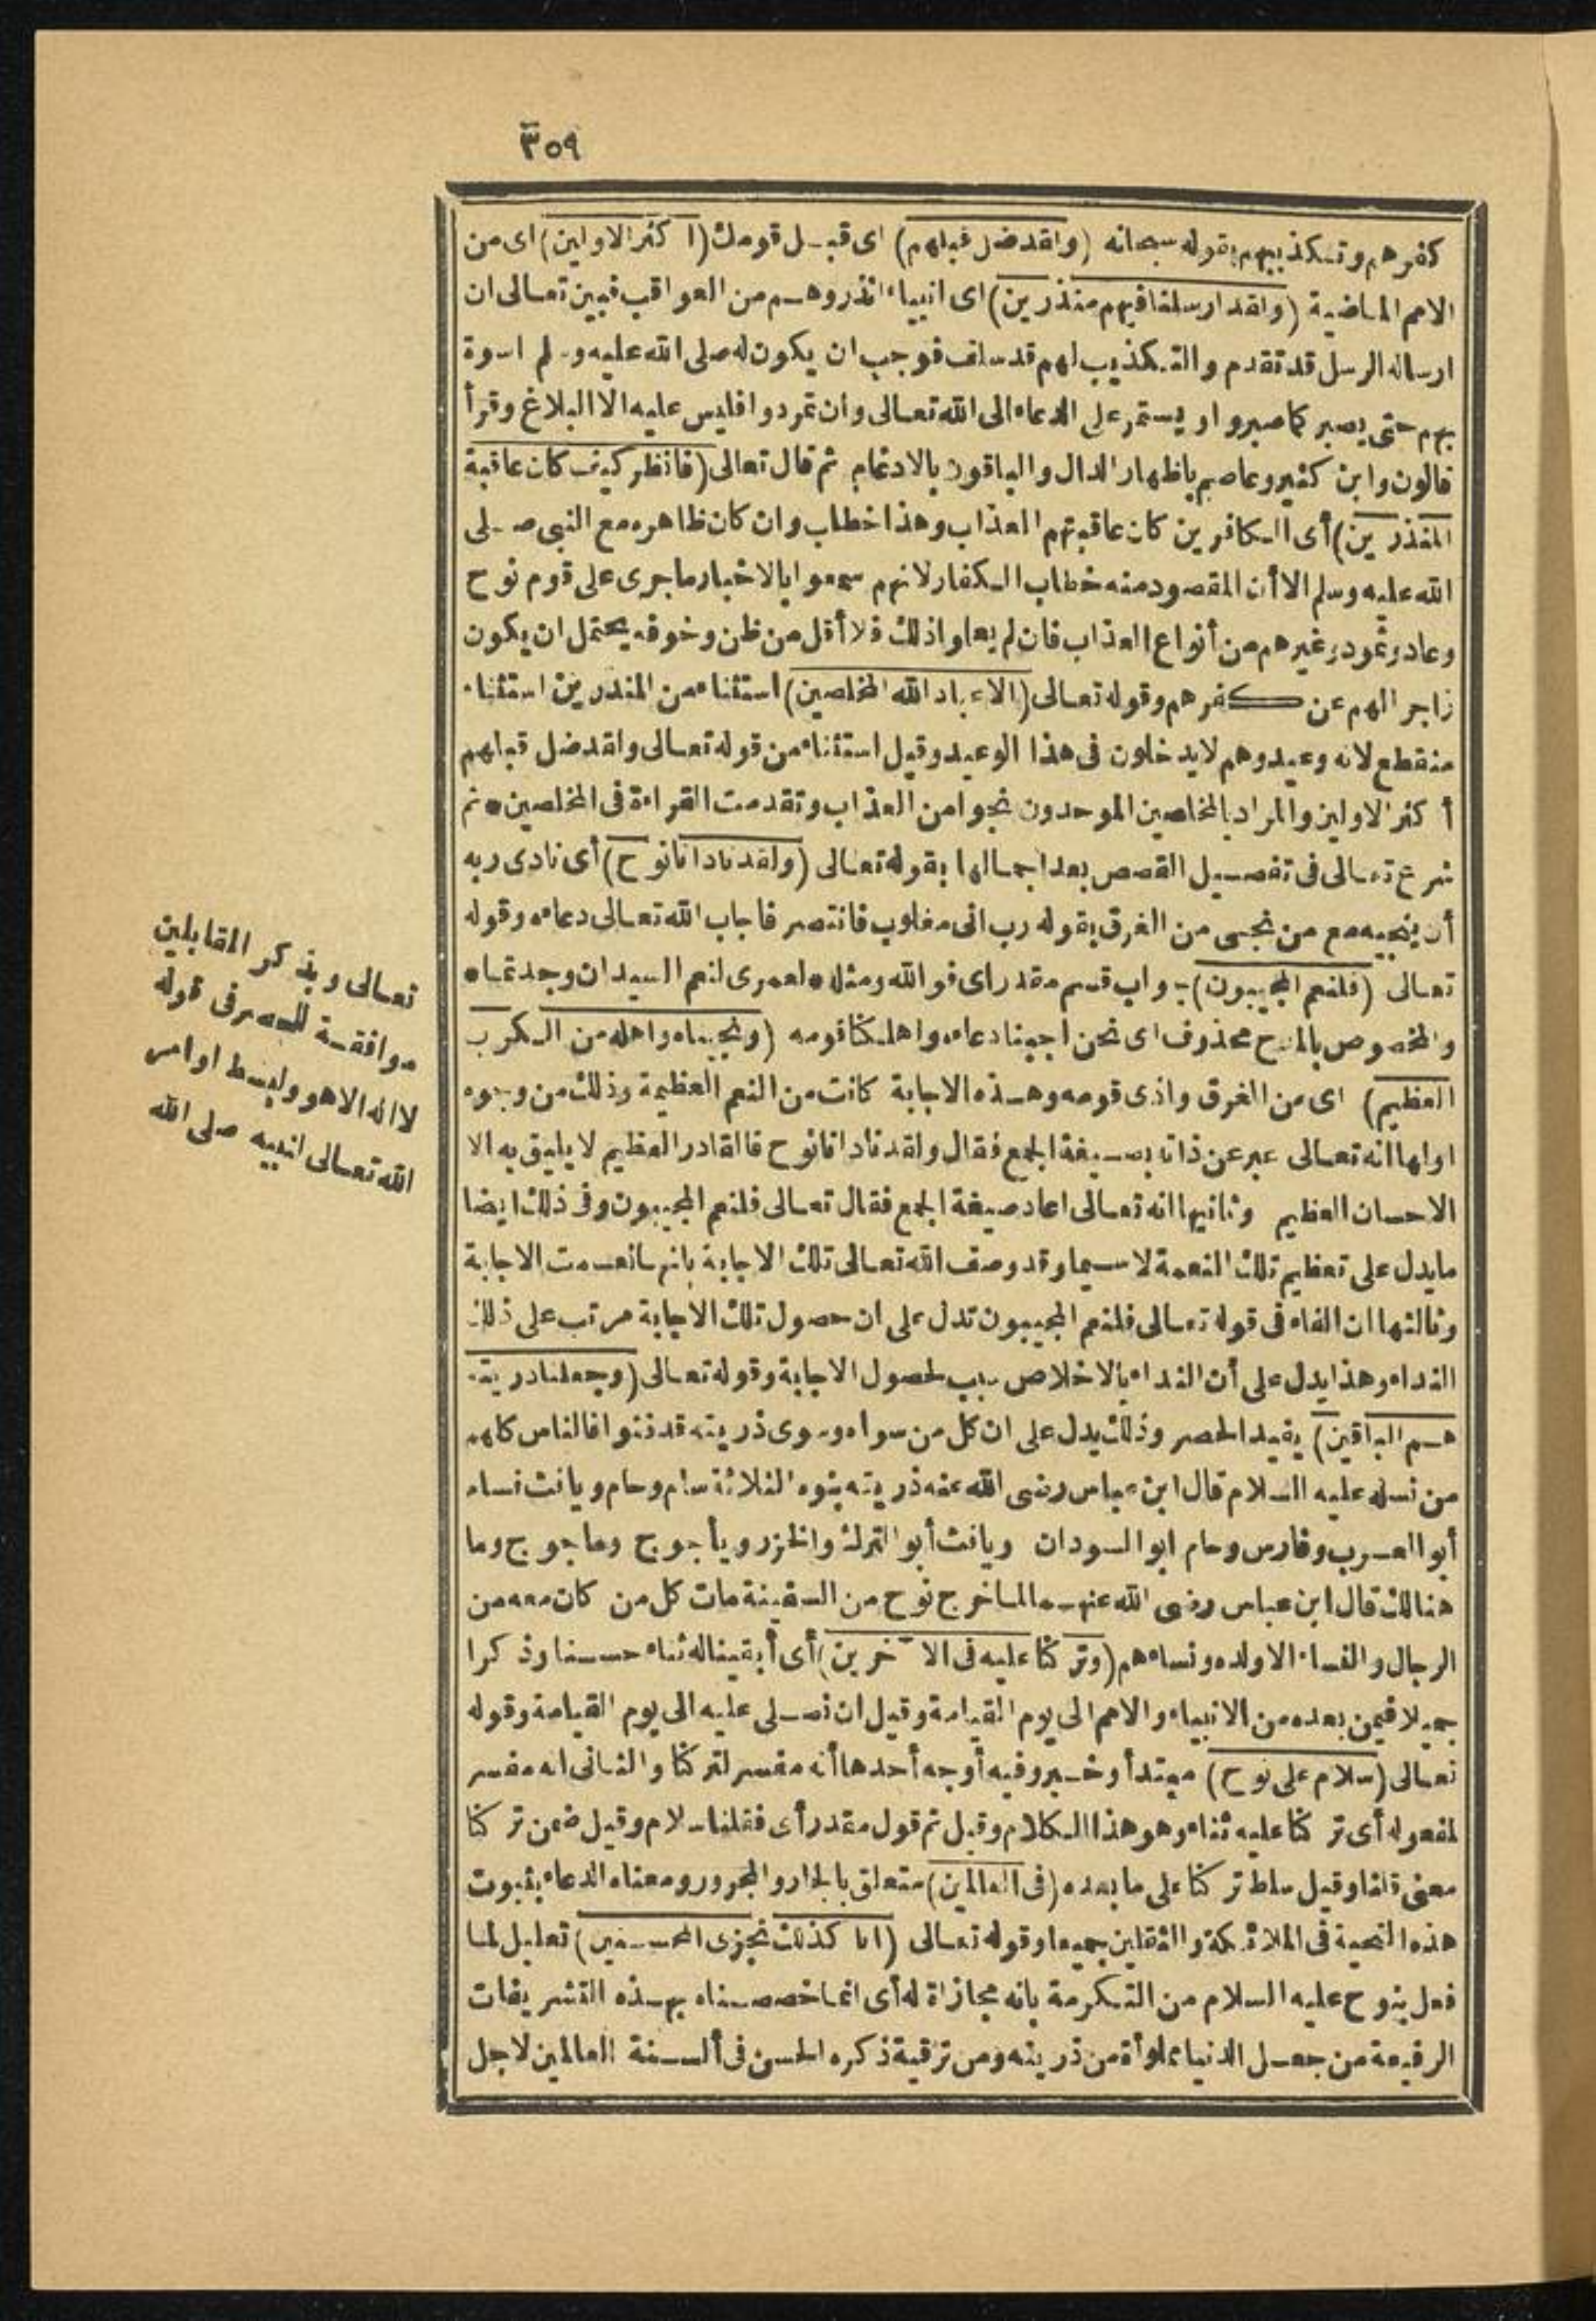 ٣٥٩
كفرهم وتكذيبهم بقوله سبحانه (ولقد ضل قبلهم) اى قبل قومك (اكثر الاولين) اى من
الامم الماضية (ولقد ارسلنا فيهم منذرين) اى انبياء انذروهم من العواقب فبين تعالى ان
ارساله الرسل قد تقدم والتكذيب لهم قد سلف فوجب ان يكون له صلى الله عليه وسلم اسوة
بهم حتى يصبر كما صبروا ويستمر على الدعاء الى الله تعالى وان تمردوا فليس عليه الا البلاغ وقرأ
قالون وابن كثير وعاصم باظهار الدال والباقون بالادغام ثم قال تعالى (فانظر كيف كان عاقبة
المنذرين) أى الكافرين كان عاقبتهم العذاب وهذا خطاب وان كان ظاهره مع النبى صلى
الله عليه وسلم الا أن المقصود منه خطاب الكفار لانهم سمعوا بالاخبار ما جرى على قوم نوح
وعاد وثمود وغيرهم من أنواع العذاب فان لم يعلموا ذلك فلا أقل من ظن وخوف يحتمل ان يكون
زاجرا لهم عن كفرهم وقوله تعالى (الا عباد الله المخلصين) استثناء من المنذرين استثناء
منقطع لانه وعيد وهم لا يدخلون فى هذا الوعيد وقيل استثناء من قوله تعالى ولقد ضل قبلهم
أكثر الاولين والمراد بالمخلصين الموحدون نجوا من العذاب وتقدمت القراءة فى المخلصين * ثم
شرع تعالى فى تفصيل القصص بعد اجمالها بقوله تعالى (ولقد نادانا نوح) أى نادى ربه
أن ينجيه مع من نجى من الغرق بقوله رب انى مغلوب فانتصر فاجاب الله تعالى دعاءه وقوله
تعالى (فلنعم المجيبون) جواب قسم مقدر اى فوالله ومثله * لعمرى لنعم السيدان وجدتما *
والمخصوص بالمدح محذوف اى نحن اجبنا دعاءه واهلكنا قومه (ونجيناه واهله من الكرب
العظيم) اى من الغرق واذى قومه وهذه الاجابة كانت من النعم العظيمة وذلك من وجوه
اولها انه تعالى عبر عن ذاته بصيغة الجمع فقال ولقد نادانا نوح فالقادر العظيم لا يليق به الا
الاحسان العظيم وثانيها انه تعالى اعاد صيغة الجمع فقال تعالى فلنعم المجيبون وفى ذلك ايضا
ما يدل على تعظيم تلك النعمة لا سيما وقد وصف الله تعالى تلك الاجابة بانها نعمت الاجابة
وثالثها ان الفاء فى قوله تعالى فلنعم المجيبون تدل على ان حصول تلك الاجابة مرتب على ذلك
النداء وهذا يدل على أن النداء بالاخلاص سبب لحصول الاجابة وقوله تعالى (وجعلنا ذريته
هم الباقين) يفيد الحصر وذلك يدل على ان كل من سواه وسوى ذريته قد فنوا فالناس كلهم
من نسله عليه السلام قال ابن عباس رضى الله عنه ذريته بنوه الثلاثة سام وحام ويافث فسام
أبو العرب وفارس وحام ابو السودان ويافث أبو الترك والخزر ويأجوج وماجوج وما
هنالك قال ابن عباس رضى الله عنهما لما خرج نوح من السفينة مات كل من كان معه من
الرجال والنساء الا ولده ونساءهم (وتركنا عليه فى الآخرين) أى أبقينا له ثناء حسنا وذكرا
جميلا فيمن بعده من الانبياء والامم الى يوم القيامة وقيل ان نصلى عليه الى يوم القيامة وقوله
تعالى (سلام على نوح) مبتدأ وخبر وفيه أوجه أحدها أنه مفسر لتركنا والثانى انه مفسر
لمفعوله أى تركنا عليه ثناء وهو هذا الكلام وقيل ثم قول مقدر أى فقلنا سلام وقيل ضمن تركنا
معنى قلنا وقيل سلط تركنا على ما بعده (فى العالمين) متعلق بالجار والمجرور ومعناه الدعاء بثبوت
هذه التحية فى الملائكة والثقلين جميعا وقوله تعالى (انا كذلك نجزى المحسنين) تعليل لما
فعل بنوح عليه السلام من التكرمة بانه مجازاة له أى انما خصصناه بهذه التشريفات
الرفيعة من جعل الدنيا مملوأة من ذريته ومن ترقية ذكره الحسن فى ألسنة العالمين لاجل
تعالى وبذكر المقابلين
موافقة للحصر فى قوله
لا اله الا هو ولبسط اوامر
الله تعالى لنبيه صلى الله